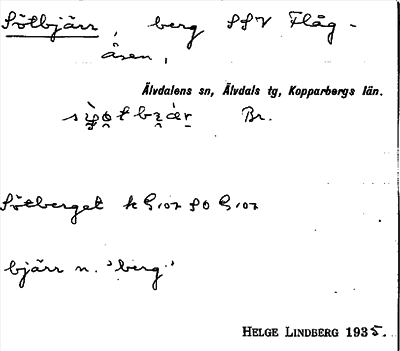 Sötbjärr, berg SSV Flåg-
åsen,
Älvdalens sn, Älvdals tg, Kopparbergs län.
Br.
Sötberget
bjärr n. "berg"
HELGE LINDBERG 1935.